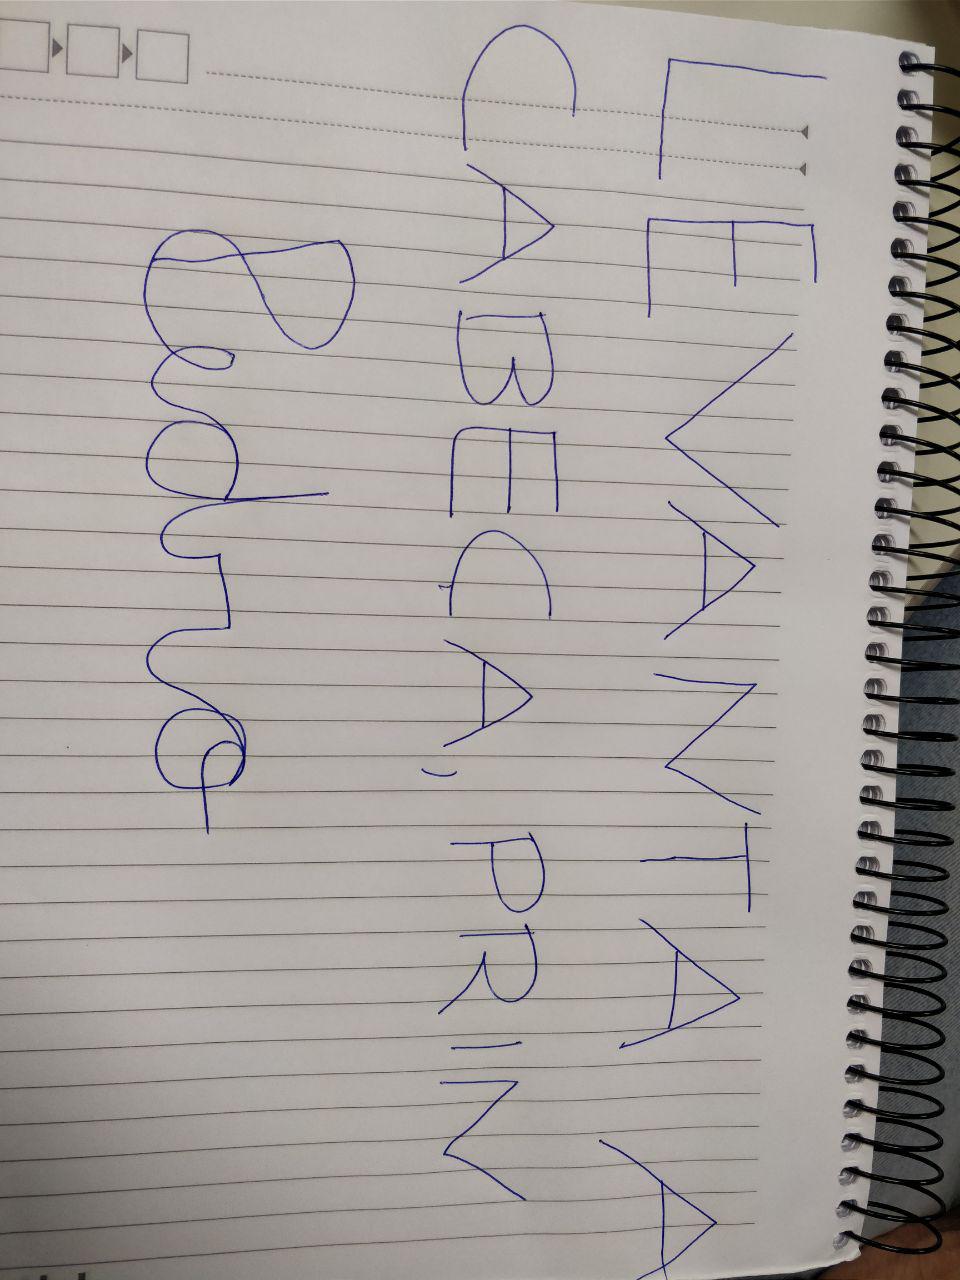 LEVANTA A
CABEÇA, PRIN
Pedro